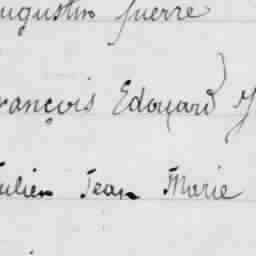 ugustin Guerre
rançois Edouard
ulien Jean Marie